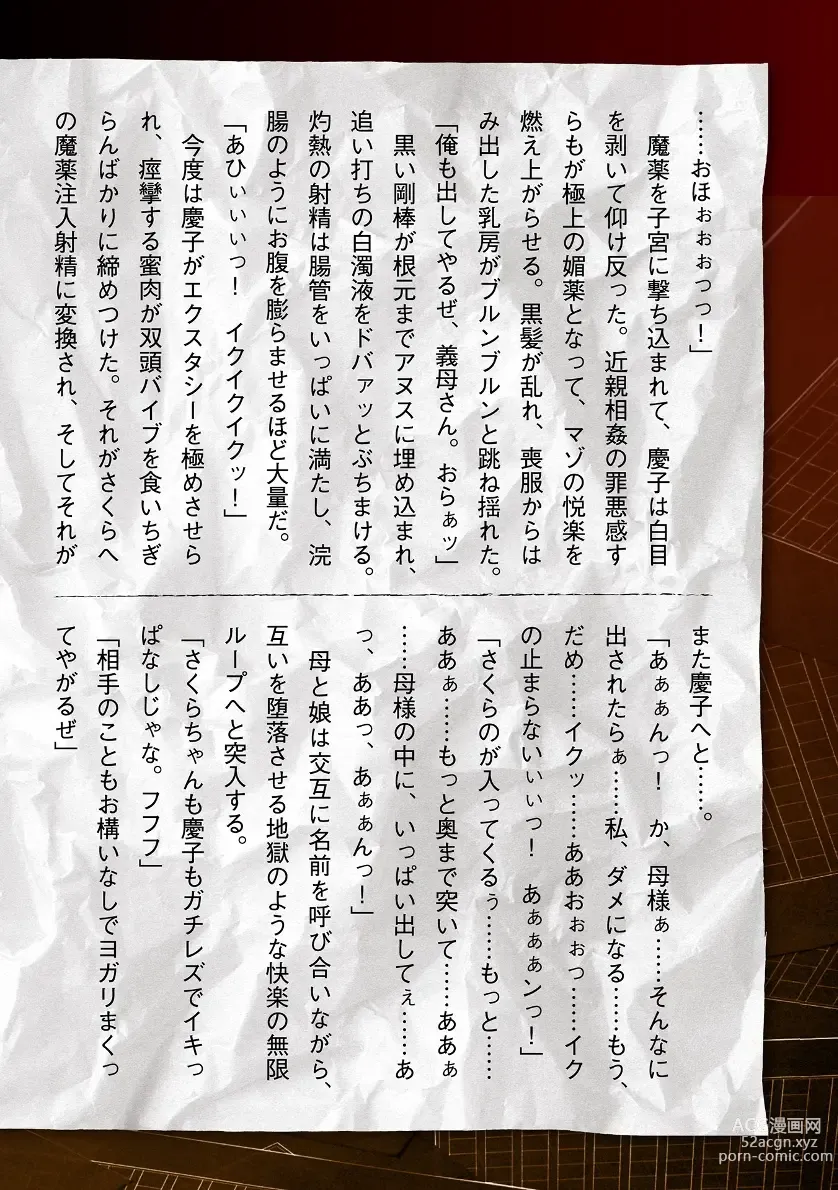 ……おほぉぉぉつっ！」
　魔薬を子宮に撃ち込まれて、慶子は白目
を剥いて仰け反った。近親相姦の罪悪感す
らもが極上の媚薬となって、マゾの悦楽を
燃え上がらせる。黒髪が乱れ、喪服からは
み出した乳房がブルンブルンと跳ね揺れた。
「俺も出してやるぜ、義母さん。おらぁッ」
　黒い剛棒が根元までアヌスに埋め込まれ、
追い打ちの白濁液をドバァッとぶちまける。
灼熱の射精は腸管をいっぱいに満たし、浣
腸のようにお腹を膨らませるほど大量だ。
「あひぃぃぃっ！　イクイクイクッ！」
　今度は慶子がエクスタシーを極めさせら
れ、痙攣する蜜肉が双頭バイブを食いちぎ
らんばかりに締めつけた。それがさくらへ
の魔薬注入射精に変換され、そしてそれが
また慶子へと……。
「あぁぁんっ！　か、母様ぁ……そんなに
出されたらぁ……私、ダメになる……もう、
だめ……イクッ……ああおぉぉっ……イク
の止まらないぃぃっ！　あぁぁぁンっ！」
「さくらのが入ってくるぅ……もっと……
ああぁ……もっと奥まで突いて……ああぁ
……母様の中に、いっぱい出してぇ……あ
っ、ああっ、あぁぁんっ！」
　母と娘は交互に名前を呼び合いながら、
互いを堕落させる地獄のような快楽の無限
ループへと突入する。
「さくらちゃんも慶子もガチレズでイキっ
ぱなしじゃな。フフフ」
「相手のこともお構いなしでヨガリまくっ
てやがるぜ」
ACG漫画网
52acgn.xyz
porn-comic.com